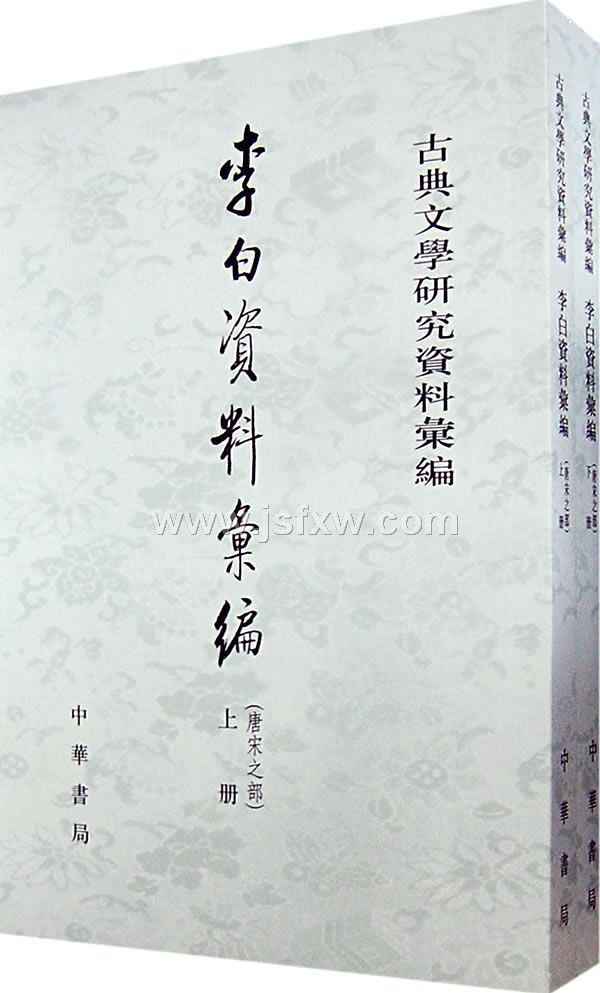 古典文學研究資料彙編
李白資料彙編
(唐宋之部)
上册
中華書局
古典文學研究資料彙編 李白資料彙編 (唐宋之部) 上册 中華書局
古典文學研究資料彙編 李白資料彙編 (唐宋之部) 下册 中華書局
www.jsfxw.com